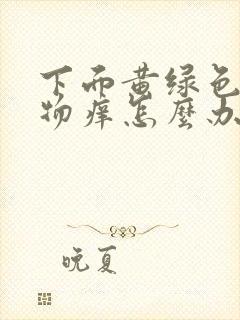 下面黄绿色
物痒怎麼办
晚夏